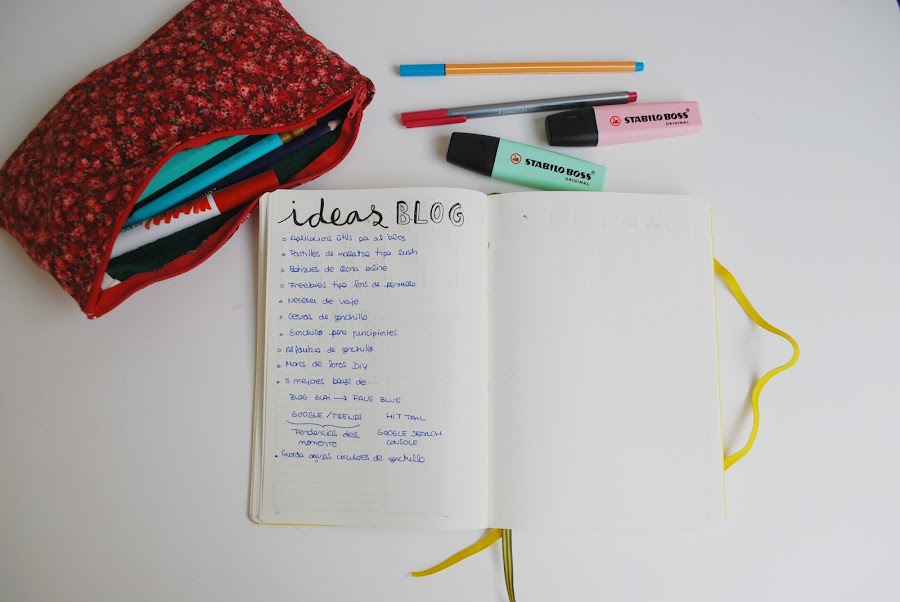 STABILO BOSS
ORIGINAL
STABILO BOSS
ORIGINAL
ideas BLOG
Aplicacions útils per al blog
Pastilles de massatge tipo lush
Botigues de llana online
Freebies tipo fons de pantalla
Neceser de viaje
Cestas de ganchillo
Ganchillo para principiantes
Alfombra de ganchillo
Marcs de fotos DIY
5 mejores blogs de....
BLOG → PALE BLUE
GOOGLE / TRENDS HIT TAIL
Tendencias del momento
GOOGLE SEARCH CONSOLE
Guarda agujas circulares de ganchillo